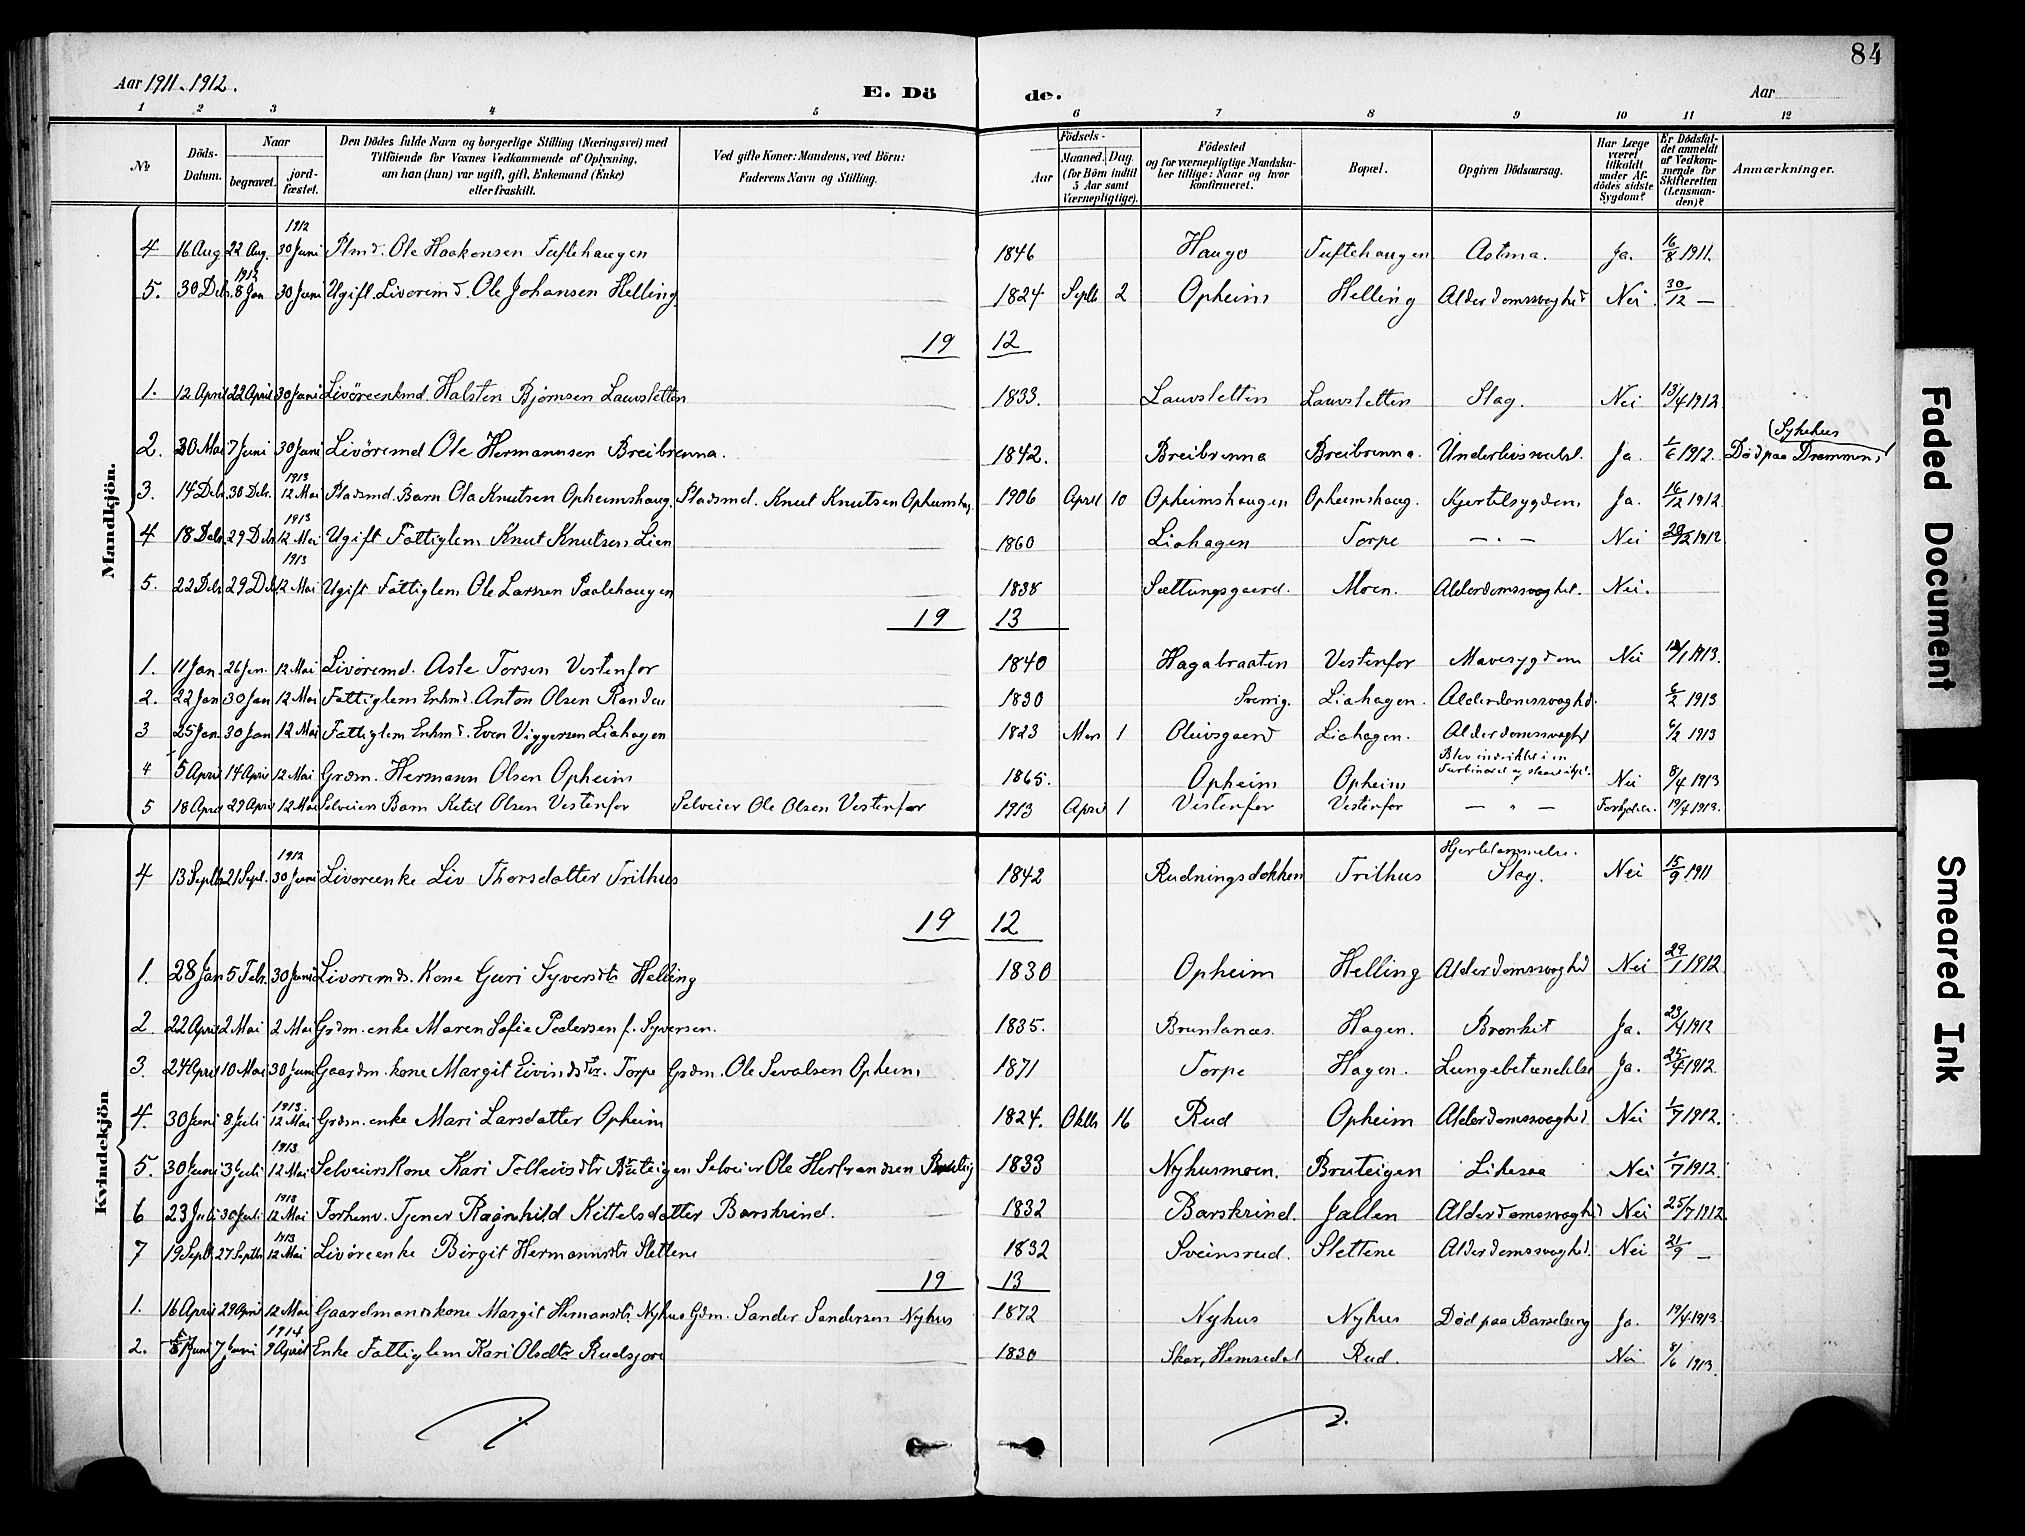 84
Aar 1911-1912.
E. Dö de.
Aar
1 2 3 4 5 6 7 8 9 10 11 12
№
Döds-Datum.
Naar
begravet.
jord-fæstet.
Den Dödes fulde Navn og borgerlige Stilling (Næringsvei) med Tilföiende for Voxnes Vedkommende af Oplysning, om han (hun) var ugift, gift, Enkemand (Enke) eller fraskilt.
Ved gifte Koner: Mandens, ved Börn: Faderens Navn og Stilling.
Födsels-
Aar
Maaned. Dag. (for Börn indtil 5 Aar samt Værnepligtige).
Födested og for værnepligtige Mandska-ber tillige: Naar og hvor konfirmeret.
Bopæl.
Opgiven Dödsaarsag.
Har Læge været tilkaldt under Af-dödes sidste Sygdom?
Er Dödsfal-det anmeldt af Vedkom-mende for Skifteretten (Lensman-den)?
Anmærkninger.
Mandkjön.
1912
4 16 Aug 22 Aug. 30 Juni Plmd. Ole Haakensen Tuftehaugen 1846 Haugo Tuftehaugen Astma. Ja. 16/8 1911.
1912
5. 30 Dcbr. 8 Jan 30 Juni Ugift Livöremd. Ole Johansen Helling 1824 Septb 2 Opheim Helling Alderdomssvaghed Nei 30/12 —
19 12
1. 12 April 22 April 30 Juni Livöreenkmd. Halsten Bjørnsen Lauvsletten 1833. Lauvsletten Lauvsletten Slag. Nei 13/4 1912
2. 30 Mai 7 Juni 30 Juni Livöremd Ole Hermannsen Breibrenna. 1842. Breibrenna Breibrenna. Ja. 1/6 1912. Död paa Drammens Sykehus
1913
3. 14 Dcbr. 30 Dcbr. 12 Mai Pladsmd. Barn Ola Knutsen Opheimshaug. Pladsmd. Knut Knutsen Opheimshaug. 1906 April 10 Opheimshaugen Opheimshaug. Kjertelsygdom Ja. 16/12 1912
1913
4 18 Dcbr. 29 Dcbr. 12 Mai Ugift Fattiglem Knut Knutsen Lien 1860 Liahagen Torpe — " — Nei 20/12 1912
1913
5. 22 Dcbr 29 Dcbr 12 Mai Ugift Fattiglem Ole Larssen Paalehaugen 1838 Sættungsgaard. Moen. Alderdomssvaghed. Nei.
19 13
1. 11 Jan. 26 Jan. 12 Mai Livöremd. Asle Torsen Vestenfor 1840 Hagabraaten Vestenfor Mavesygdom Nei 12/1 1913.
2. 22 Jan 30 Jan 12 Mai Fattiglem Enkmd. Anton Olsen Randen 1830 Sverrig. Liahagen. Alderdomssvaghed. 6/2 1913
3 25 Jan. 30 Jan 12 Mai Fattiglem Enkmd. Even Viggersen Liahagen 1823 Mars 1 Oleivsgaard Liahagen. Alderdomssvaghed 6/2 1913
4 5 April 14 April 12 Mai Grdm. Hermann Olsen Opheim 1865. Opheim Opheim Blev indviklet i en Nei 8/4 1913
5 18 April 29 April 12 Mai Selveiers Barn Ketil Olsen Vestenfor Selveier Ole Olsen Vestenfor 1913 April 1 Vestenfor Vestenfor — " — 19/4 1913.
Kvindekjön
1912
4 13 Septb 21 Sept. 30 Juni Livöreenke Liv Thorsdatter Trilhus 1842 Rudningsdokken Trilhus Hjertelammelse. Slag. Nei 15/9 1911
19 12
1. 28 Jan 5 Febr. 30 Juni Livöremds. Kone Guri Syversdtr Helling 1830 Opheim Helling Alderdomssvaghed Nei 29/1 1912
2. 22 April 2 Mai 2 Mai Grdm. enke Maren Sofie Pedersen f. Syversen. 1835. Brunlanæs. Hagen. Bronkit Ja. 23/4 1912
3. 24 April 10 Mai 30 Juni Gaardm. kone Margit Eivindsdtr. Torpe Grdm. Ole Sevalsen Opheim 1871 Torpe Hagen. Lungebetændelse Ja. 25/4 1912.
1913.
4. 30 Juni 8 Juli 12 Mai Grdm. enke Mari Larsdatter Opheim 1824. Oktb 16 Rud Opheim Alderdomssvaghed Nei 1/7 1912.
1913
5. 30 Juni 3 Juli 12 Mai Selveiers Kone Kari Tollevsdtr Bruteigen Selveier Ole Herbrandsen Bruteig 1833 Nyhusmoen. Bruteigen Likesaa Nei 1/7 1912.
1913
6 23 Juli 30 Juli 12 Mai Forhenv. Tjener Ragnhild Kittelsdatter Barskrind. 1832 Barskrind. Jallen Alderdomssvaghed Nei 25/7 1912.
1913
7 19 Septb 27 Septbr 12 Mai Livöreenke Birgit Hermannsdtr Slettene 1832 Sveinsrud. Slettene Alderdomssvaghed. Nei 21/9 —
19 13
1. 16 April 29 April 12 Mai Gaardmandskone Margit Hermansdtr Nyhus Gdm. Sander Sandersen Nyhus 1872 Nyhus Nyhus Död paa Barselseng Ja. 19/4 1913
1914
2. Juni 7 Juni 9 April Enke Fattiglem Kari Olsdtr Rudsjore 1830 Skar, Hemsedal Rud. Nei 8/6 1913.
Faded Document
Smeared Ink